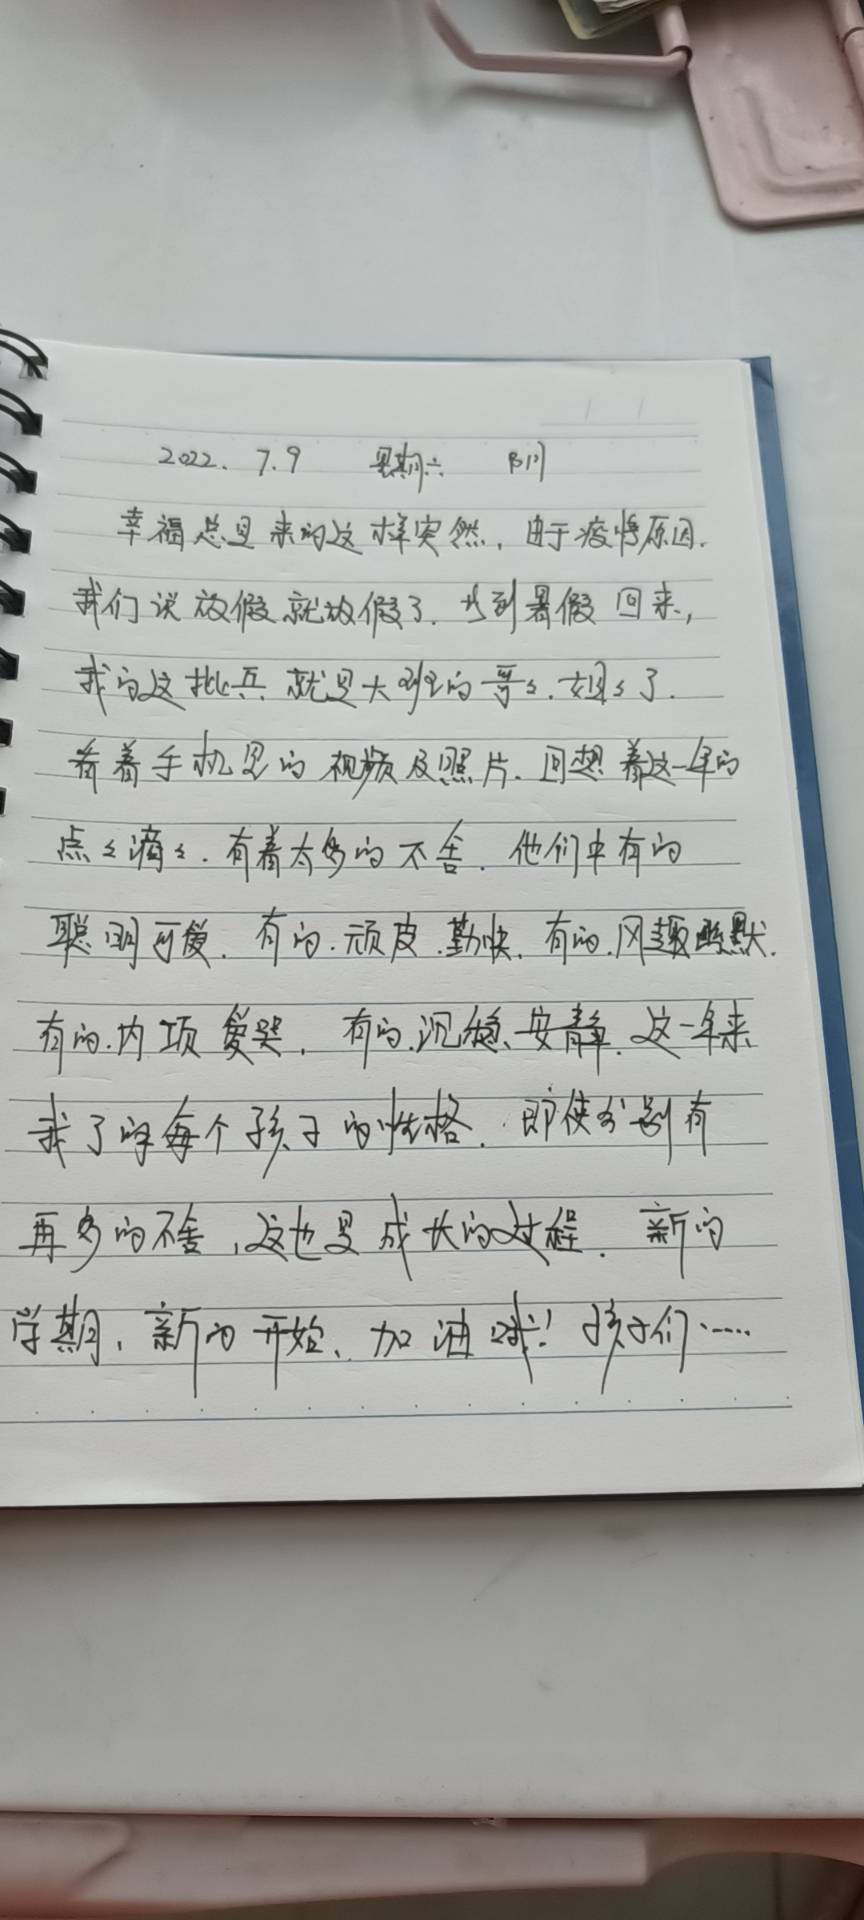 2022.7.9 星期六 阴
幸福总是来的这样突然,由于疫情原因.
我们说放假就放假了.当到暑假回来,
我的这批兵就是大班的哥々.姐々了.
看着手机里的视频及照片.回想着这一年的
点々滴々.有着太多的不舍.他们中有的
聪明可爱.有的.顽皮.勤快.有的.风趣幽默.
有的.内项爱哭.有的.沉稳、安静.这一年来
我了解每个孩子的性格.即使分别有
再多的不舍,这也是成长的过程.新的
学期,新的开始、加油哦!孩子们……